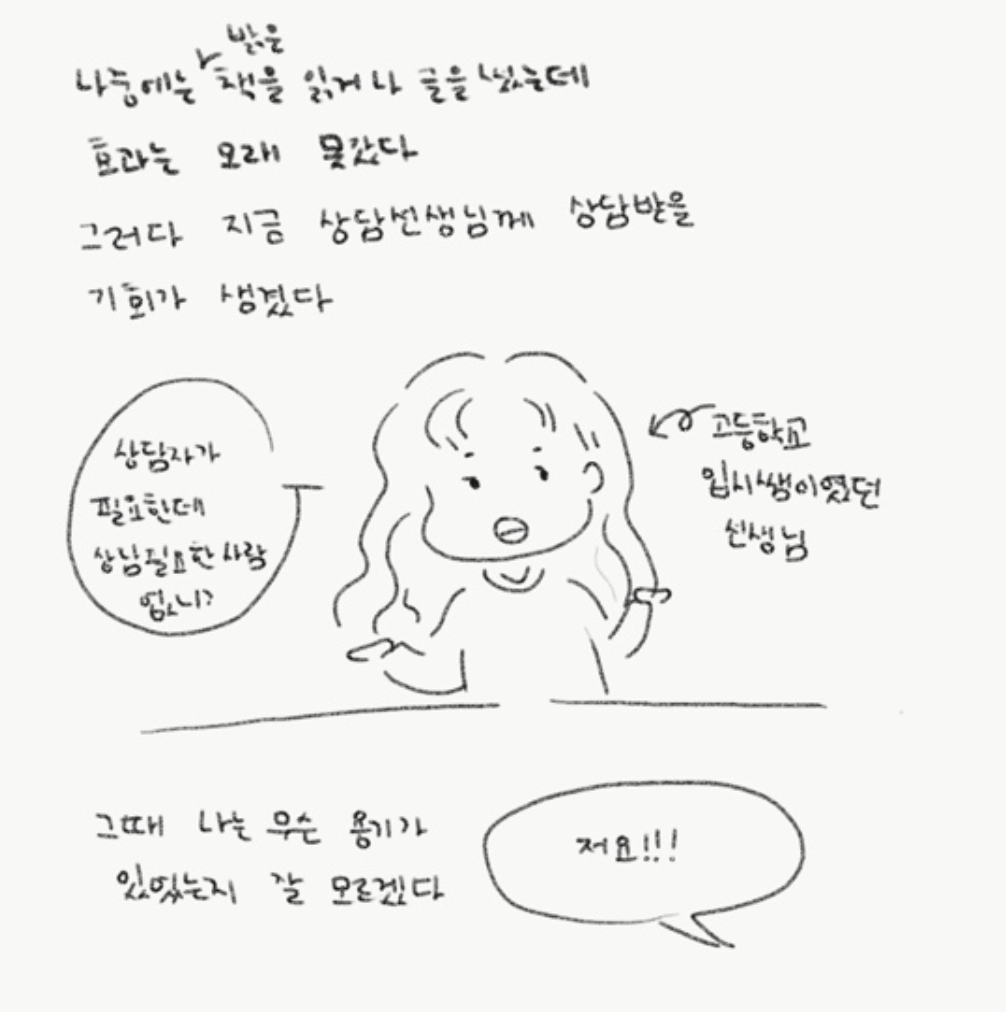 나중에는 밝은 책을 읽거나 글을 썼는데
효과는 오래 못갔다
그러다 지금 상담선생님께 상담받을
기회가 생겼다
상담자가
필요한데
상담필요한 사람
없니?
고등학교
입시쌤이였던
선생님
그때 나는 무슨 용기가
있었는지 잘 모르겠다
저요!!!